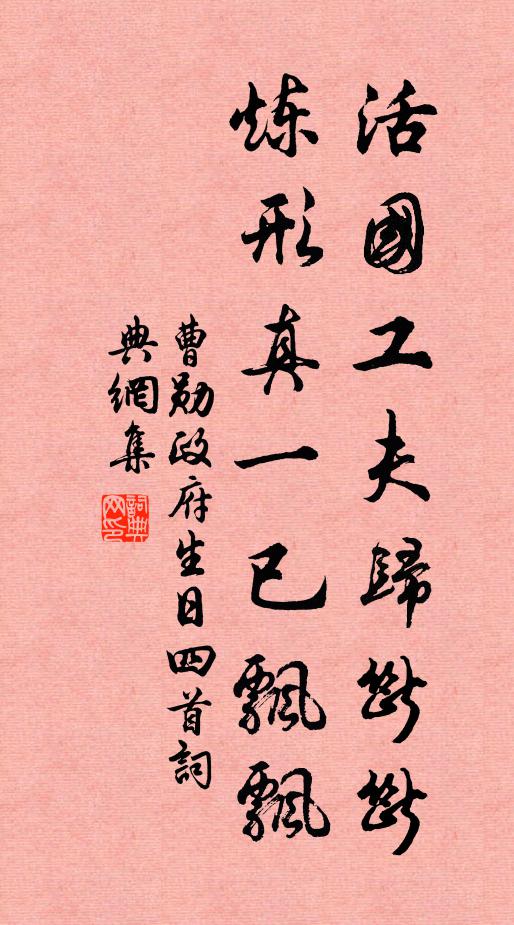 活國工夫歸斷斷
炼形真一已飄飄
曹勛政府生日四首詞
典網集
詞典网印